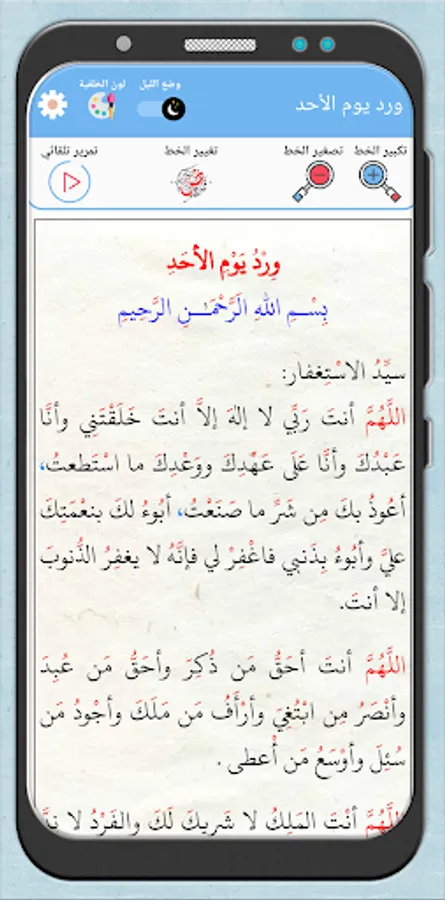 وضع الليل
لون الخلفية
ورد يوم الأحد
تكبير الخط
تصغير الخط
تغيير الخط
تمرير تلقائي
وِرْدُ يَوْمِ الأَحَدِ
بِسْـمِ اللهِ الرَّحْمَـٰـنِ الرَّحِيمِ
سيِّدُ الاسْتِغفار:
اللَّهُمَّ أنتَ رَبِّي لا إلهَ إلاَّ أنتَ خَلَقْتَنِي وأنَّا
عَبْدُكَ وأنَّا عَلَى عَهْدِكَ ووَعْدِكَ ما اسْتَطعتُ،
أعُوذُ بكَ مِن شَرِّ ما صَنَعْتُ، أبُوءُ لكَ بنعْمَتِكَ
عليَّ وأبُوءُ بِذَنبي فاغْفِرْ لي فإنَّهُ لا يغفِرُ الذُّنوبَ
إلا أنتَ.
اللَّهُمَّ أنتَ أحَقُّ مَن ذُكِرَ وأحَقُّ مَن عُبِدَ
وأنْصَرُ مِن ابْتُغِيَ وأرْأَفُ مَن مَلَكَ وأجْودُ مَن
سُئِلَ وأوْسَعُ مَن أعطى .
اللَّهُمَّ أنْتَ المَلِكُ لا شَريكَ لَكَ والفَرْدُ لا ندَّ